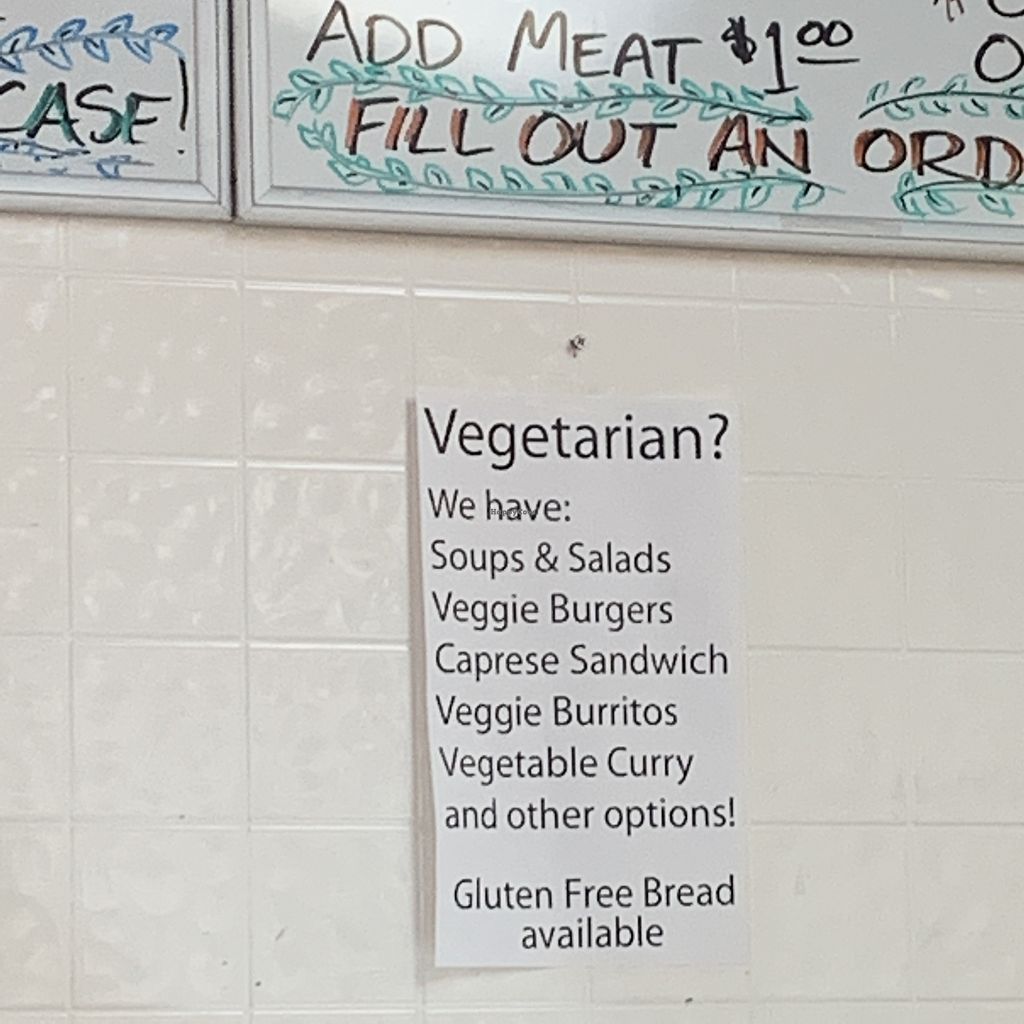 CASE!
ADD MEAT $1.00
FILL OUT AN
Vegetarian?
We have:
Soups & Salads
Veggie Burgers
Caprese Sandwich
Veggie Burritos
Vegetable Curry
and other options!
Gluten Free Bread
available